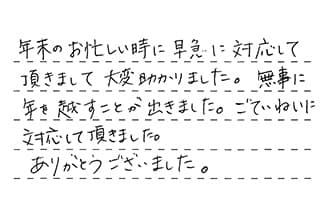 年末のお忙しい時に早急に対応して
頂きまして大変助かりました。無事に
年を越すことが出きました。ごていねいに
対応して頂きました。
ありがとうございました。